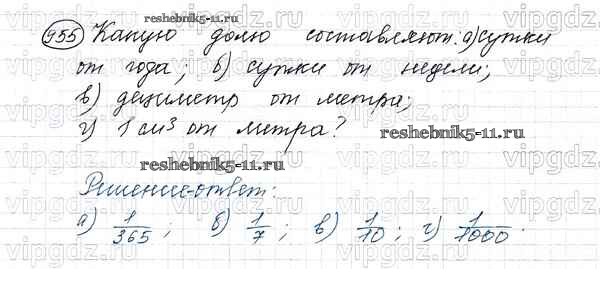 reshebnik5-11.ru
955 Какую долю составляют: а) сутки
от года; б) сутки от недели;
в) дециметр от метра;
г) 1 см³ от метра?
reshebnik5-11.ru
reshebnik5-11.ru
Решение-ответ:
а) 1/365; б) 1/7; в) 1/10; г) 1/1000.
vipgdz